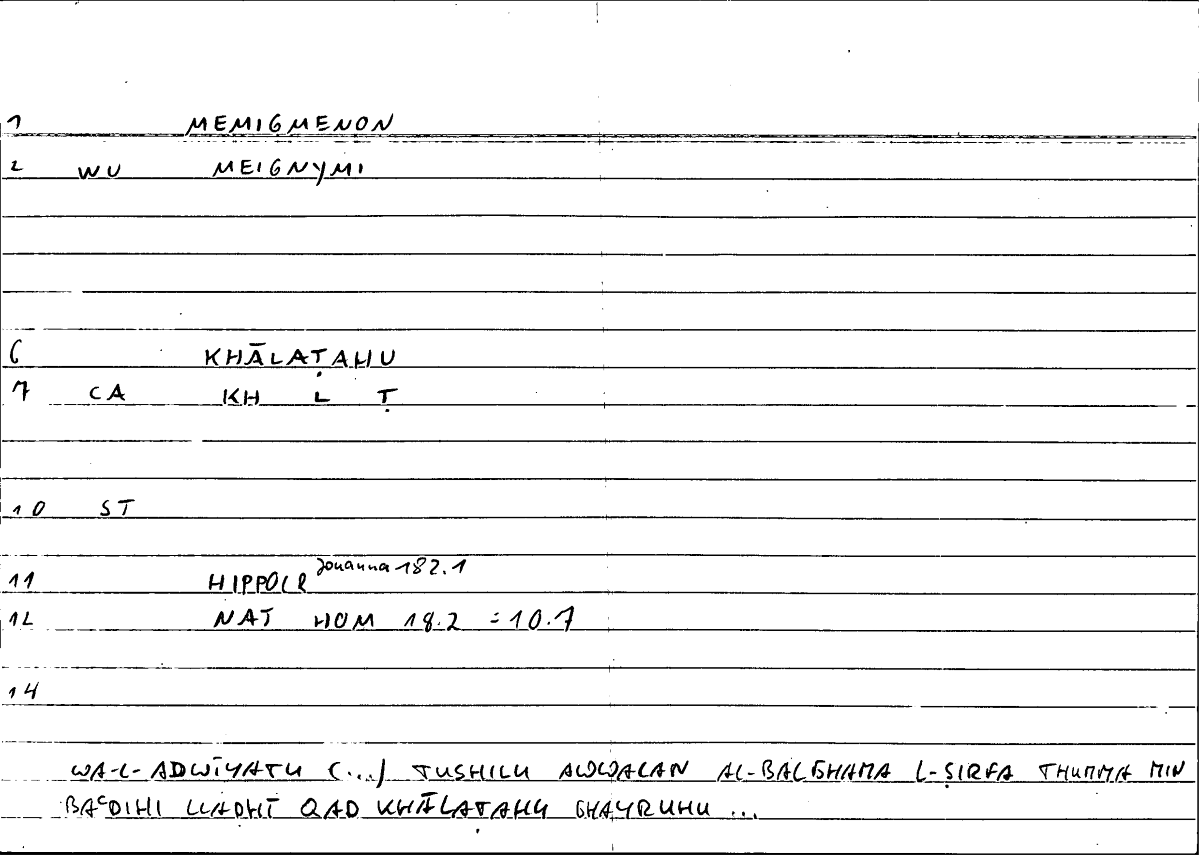 1 MEMIGMENON
2 WU MEIGNYMI
6 KHĀLAṬAHU
7 CA KH L Ṭ
10 ST
11 HIPPOCR Johanna 182.1
12 NAT HOM 18.2 = 10.7
14
WA-L-ADWIYATU (...) TUSHILU AWWALAN AL-BALGHAMA L-ṢIRFA THUMMA MIN
BAʿDIHI LLADHĪ QAD KHĀLAṬAHU GHAYRUHU ...